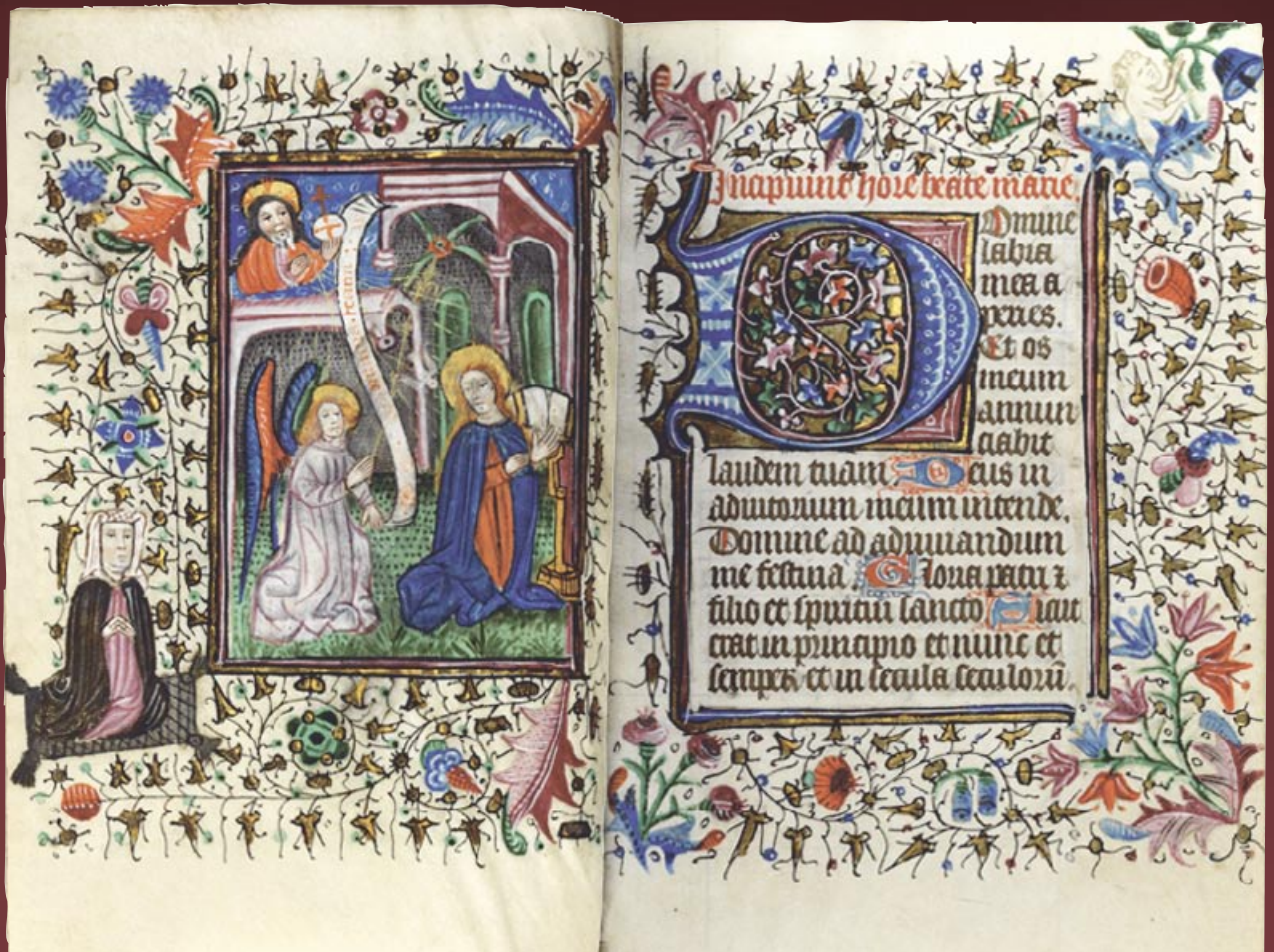 Incipiunt hore beate marie.
Domine
labia
mea a
peries.
Et os
meum
annun
ciabit
laudem tuam Deus in
adiutorium meum intende.
Domine ad adiuuandum
me festina Gloria patri ⁊
filio et spiritui sancto Sicut
erat in principio et nunc et
semper et in secula seculorū